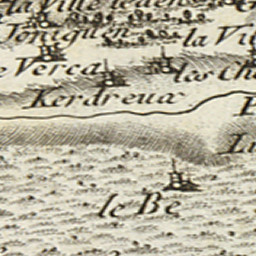 la Ville
Toniguen
la Vil
Verca
les Che
Kerdreux
le Be